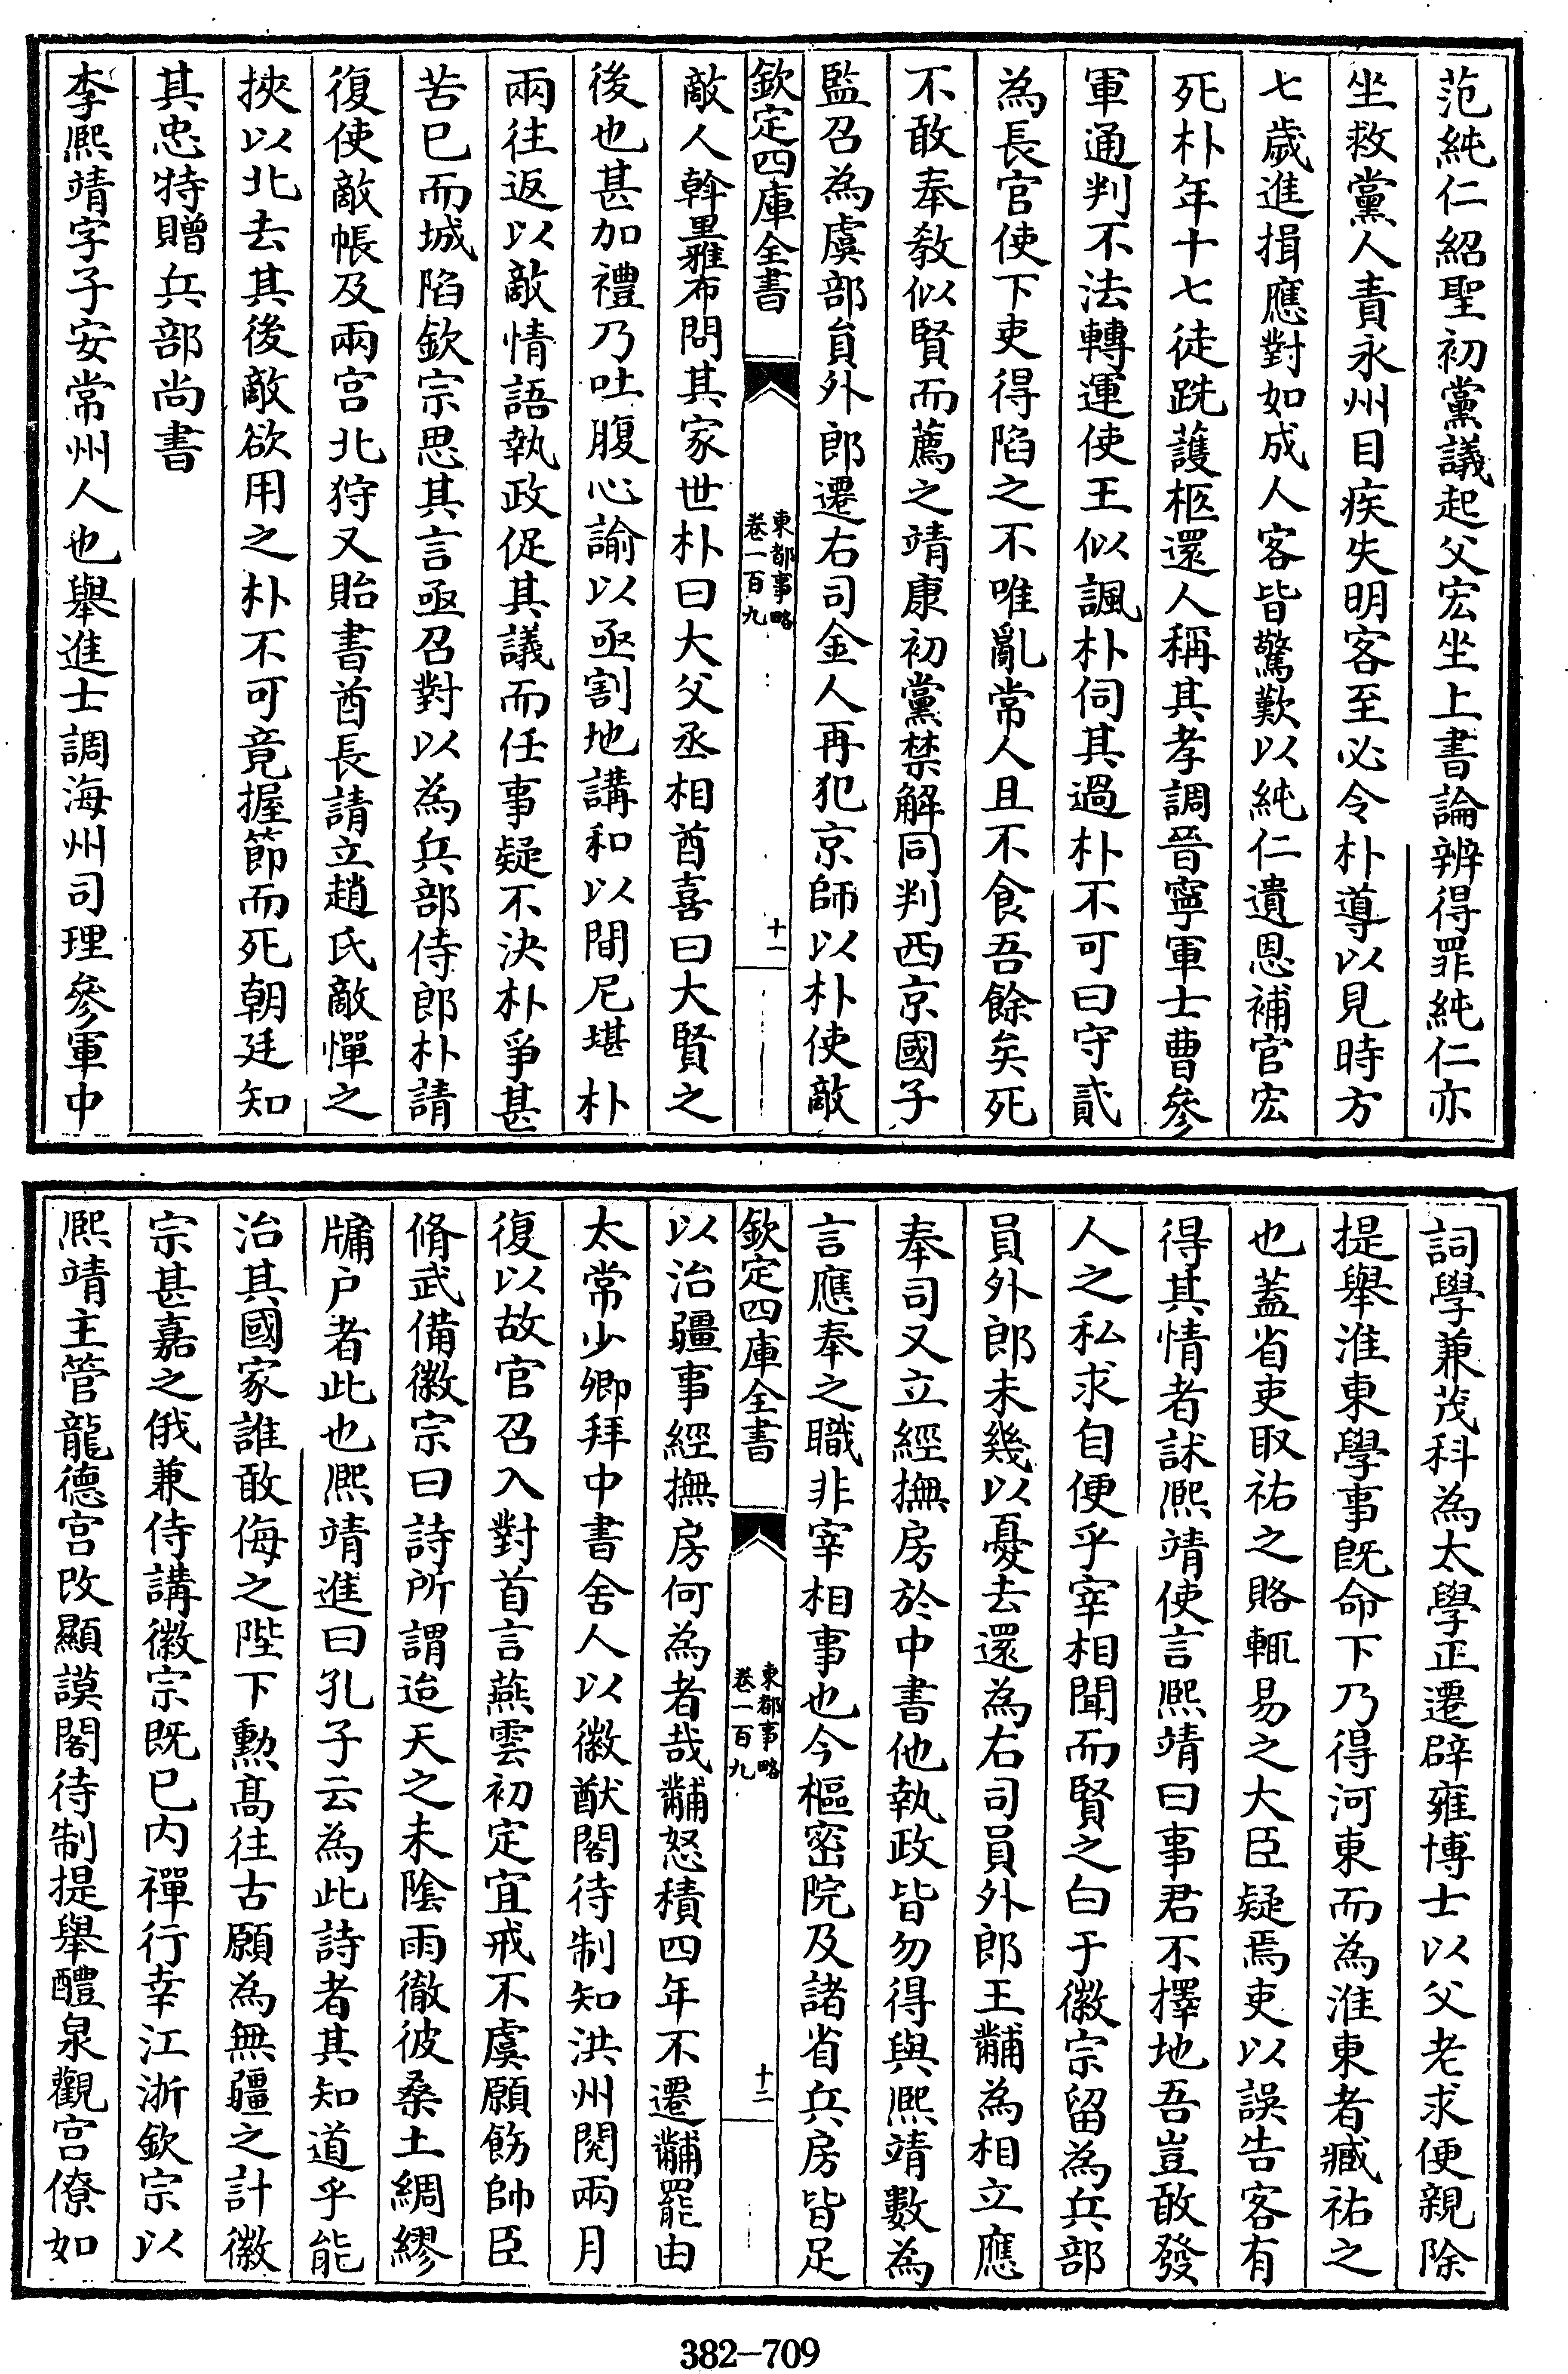 范純仁紹聖初黨議起父宏坐上書論辨得罪純仁亦
坐救黨人責永州目疾失明客至必令朴導以見時方
七歲進揖應對如成人客皆驚歎以純仁遺恩補官宏
死朴年十七徒跣護柩還人稱其孝調晉寧軍士曹參
軍通判不法轉運使王似諷朴伺其過朴不可曰守貳
為長官使下吏得陷之不唯亂常人且不食吾餘矣死
不敢奉教似賢而薦之靖康初黨禁解同判西京國子
監召為虞部員外郎遷右司金人再犯京師以朴使敵
欽定四庫全書
東都事略
卷一百九
十一
敵人斡里雅布問其家世朴曰大父丞相酋喜曰大賢之
後也甚加禮乃吐腹心諭以亟割地講和以間尼堪朴
兩往返以敵情語執政促其議而任事疑不決朴爭甚
苦已而城陷欽宗思其言亟召對以為兵部侍郎朴請
復使敵帳及兩宫北狩又貽書酋長請立趙氏敵憚之
挾以北去其後敵欲用之朴不可竟握節而死朝廷知
其忠特贈兵部尚書
李熙靖字子安常州人也舉進士調海州司理參軍中
詞學兼茂科為太學正遷辟雍博士以父老求便親除
提舉淮東學事旣命下乃得河東而為淮東者臧祐之
也蓋省吏取祐之賂輒易之大臣疑焉吏以誤告客有
得其情者訹熙靖使言熙靖曰事君不擇地吾豈敢發
人之私求自便乎宰相聞而賢之白于徽宗留為兵部
員外郎未幾以憂去還為右司員外郎王黼為相立應
奉司又立經撫房於中書他執政皆勿得與熙靖數為
言應奉之職非宰相事也今樞密院及諸省兵房皆足
欽定四庫全書
東都事略
卷一百九
十二
以治疆事經撫房何為者哉黼怒積四年不遷黼罷由
太常少卿拜中書舍人以徽猷閣待制知洪州閱兩月
復以故官召入對首言燕雲初定宜戒不虞願飭帥臣
脩武備徽宗曰詩所謂迨天之未陰雨徹彼桑土綢繆
牖户者此也熙靖進曰孔子云為此詩者其知道乎能
治其國家誰敢侮之陛下勲髙往古願為無疆之計徽
宗甚嘉之俄兼侍講徽宗既已内禪行幸江浙欽宗以
熙靖主管龍德宫改顯謨閣待制提舉醴泉觀宫僚如
382-709